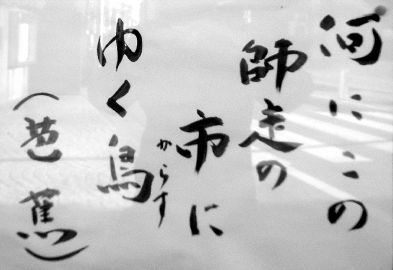 河にこの
師走の
市に
ゆく烏
からす
(芭蕉)